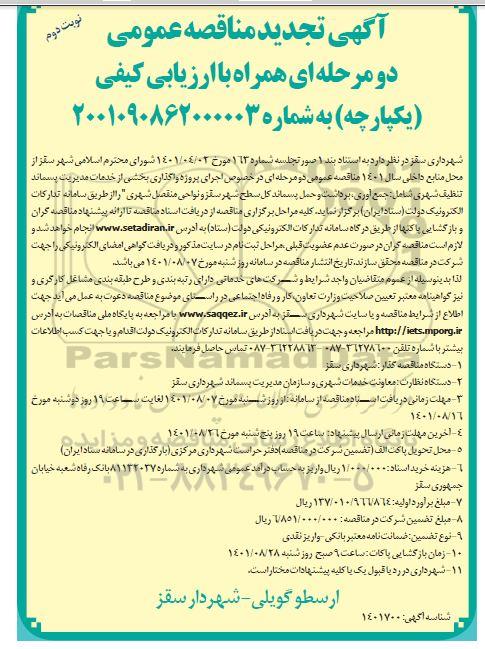 نوبت دوم
آگهی تجدید مناقصه عمومی
دو مرحله ای همراه با ارزیابی کیفی
(یکپارچه) به شماره ۲۰۰۱۰۹۰۸۶۲۰۰۰۰۰۳
شهرداری سقز در نظر دارد به استناد بند ۱ صورتجلسه شماره ۱۶۳ مورخ ۱۴۰۱/۰۴/۰۲ شورای محترم اسلامی شهر سقز از
محل منابع داخلی سال ۱۴۰۱ مناقصه عمومی دو مرحله ای در خصوص اجرای پروژه واگذاری بخشی از خدمات مدیریت پسماند
تنظیف شهری شامل: جمع آوری، برداشت و حمل پسماند کل سطح شهر سقز و نواحی منفصل شهری" را از طریق سامانه تدارکات
الکترونیک دولت (ستاد ایران) برگزار نماید. کلیه مراحل برگزاری مناقصه از دریافت اسناد مناقصه تا ارائه پیشنهاد مناقصه گران
و بازگشایی پاکتها از طریق درگاه سامانه تدارکات الکترونیکی دولت (ستاد) به آدرس www.setadiran.ir انجام خواهد شد و
لازم است مناقصه گران در صورت عدم عضویت قبلی، مراحل ثبت نام در سایت مذکور و دریافت گواهی امضای الکترونیکی را جهت
شرکت در مناقصه محقق سازند. تاریخ انتشار مناقصه در سامانه روز شنبه مورخ ۱۴۰۱/۰۸/۰۷ می باشد.
لذا بدینوسیله از عموم متقاضیان واجد شرایط و شرکت های خدماتی دارای رتبه بندی و طرح طبقه بندی مشاغل کارگری و
نیز گواهینامه معتبر تعیین صلاحیت وزارت تعاون، کار و رفاه اجتماعی در راستای موضوع مناقصه دعوت به عمل می آید جهت
اطلاع از شرایط مناقصه و یا سایت شهرداری سقز به آدرس www.saqqez.ir یا مراجعه به پایگاه ملی مناقصات به آدرس
http://iets.mporg.ir مراجعه و جهت دریافت اسناد از طریق سامانه تدارکات الکترونیک دولت اقدام و یا جهت کسب اطلاعات
بیشتر با شماره تلفن ۳۶۲۷۸۶۰۰-۰۸۷ -۳۶۲۲۸۸۶۳-۰۸۷ تماس حاصل فرمایند.
۱- دستگاه مناقصه گذار: شهرداری سقز
۲- دستگاه نظارت: معاونت خدمات شهری و سازمان مدیریت پسماند شهرداری سقز
۳- مهلت زمانی دریافت اسناد مناقصه از سامانه: از روز شنبه مورخ ۱۴۰۱/۰۸/۰۷ لغایت ساعت ۱۹ روز دوشنبه مورخ
۱۴۰۱/۰۸/۱۶
۴- آخرین مهلت زمانی ارسال پیشنهاد: ساعت ۱۹ روز پنج شنبه مورخ ۱۴۰۱/۰۸/۲۶
۵- محل تحویل پاکت الف (تضمین شرکت در مناقصه) دفتر حراست شهرداری مرکزی (بارگذاری در سامانه ستاد ایران)
۶- هزینه خرید اسناد: ۱/۰۰۰/۰۰۰ ریال واریز به حساب درآمد عمومی شهرداری به شماره ۸۱۱۳۲۰۳۷ بانک رفاه شعبه خیابان
جمهوری سقز
۷- مبلغ برآورد اولیه: ۱۳۷/۰۱۰/۹۶۶/۸۶۴ ریال
۸- مبلغ تضمین شرکت در مناقصه: ۶/۸۵۱/۰۰۰/۰۰۰ ریال
۹- نوع تضمین: ضمانت نامه معتبر بانکی-واریز نقدی
۱۰- زمان بازگشایی پاکات: ساعت ۹ صبح روز شنبه ۱۴۰۱/۰۸/۲۸
۱۱- شهرداری در رد یا قبول یک یا کلیه پیشنهادات مختار است.
ارسطو گویلی-شهردار سقز
شناسه آگهی: ۱۴۰۱۷۰۰
ParsNamadData
۰۲۱-۸۸۳۴۹۶۷۰-۵